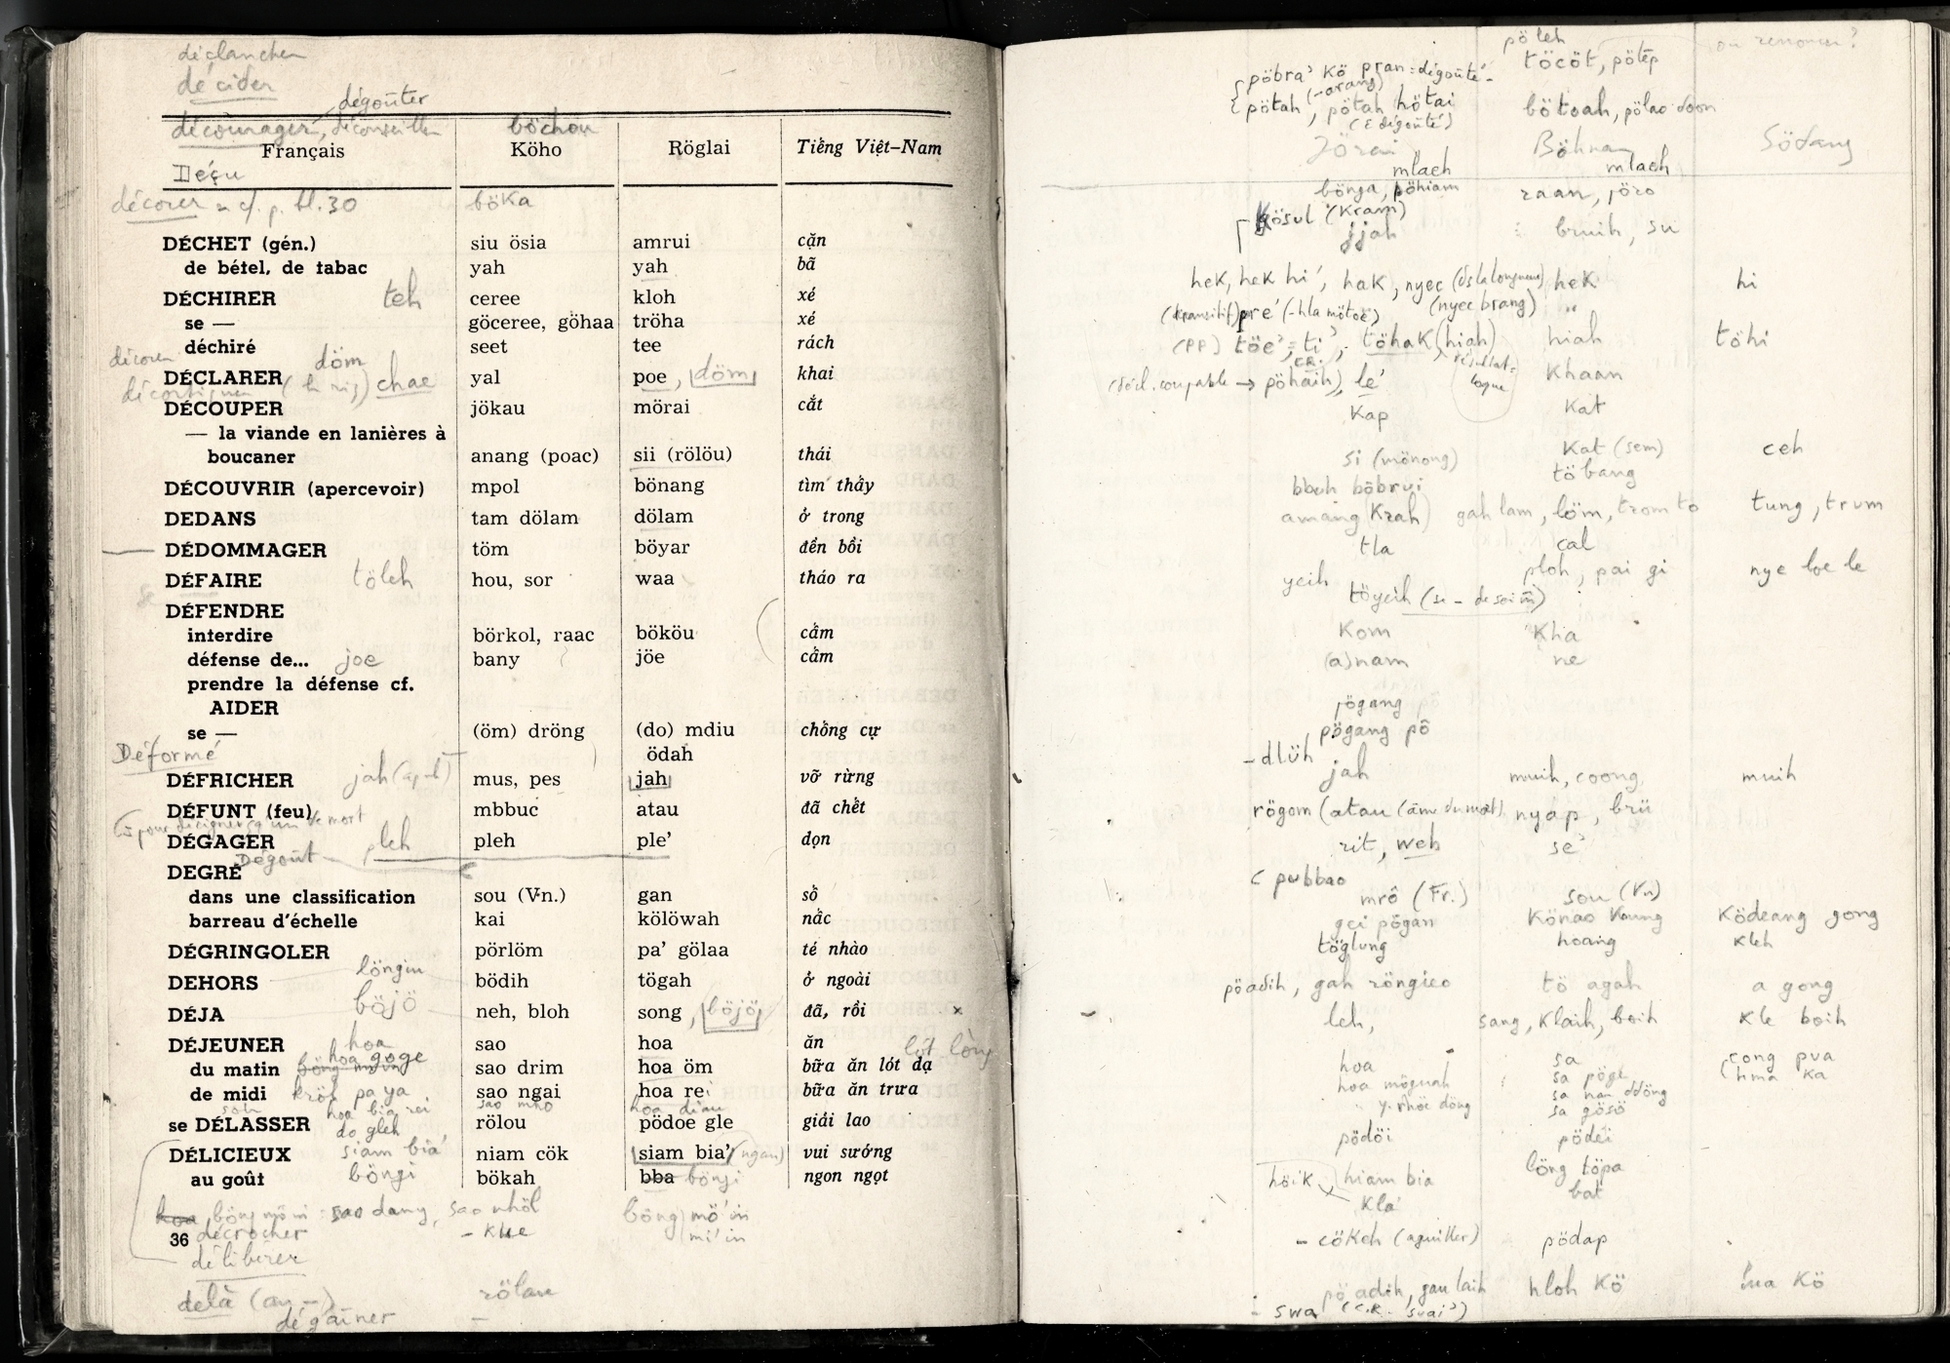 déclancher
décider
dégoûter
décourager, déconseiller böchou
Français Köho Röglai Tiếng Việt–Nam
Déçu
décorer cf. p. bl. 30 böka
DÉCHET (gén.) siu ösia amrui cặn
de bétel, de tabac yah yah bã
DÉCHIRER teh ceree kloh xé
se — göceree, göhaa tröha xé
déchiré seet tee rách
döm
DÉCLARER yal poe, döm khai
décortiquer chae
DÉCOUPER jökau mörai cắt
— la viande en lanières à
boucaner anang (poac) sii (rölöu) thái
DÉCOUVRIR (apercevoir) mpol bönang tìm thấy
DEDANS tam dölam dölam ở trong
DÉDOMMAGER töm böyar đền bồi
DÉFAIRE töleh hou, sor waa tháo ra
DÉFENDRE
interdire börkol, raac bököu cấm
défense de... joe bany jöe cấm
prendre la défense cf.
AIDER
se — (öm) dröng (do) mdiu chống cự
ödah
Déformé
DÉFRICHER jah mus, pes jah vỡ rừng
DÉFUNT (feu) mbbuc atau đã chết
DÉGAGER pleh pleh ple’ dọn
Dégoût
DEGRÉ
dans une classification sou (V.n.) gan số
barreau d’échelle kai kölöwah nấc
DÉGRINGOLER pörlöm pa’ gölaa té nhào
löngiu
DEHORS bödih tögah ở ngoài
DÉJA böjö neh, bloh song, böjö đã, rồi
DÉJEUNER hoa sao hoa ăn
hoa göge lót lòng
du matin sao drim hoa öm bữa ăn lót dạ
de midi pa ya sao ngai hoa rei bữa ăn trưa
hoa bia rei sao mho hoa diau
se DÉLASSER do gleh rölou pödoe gle giải lao
DÉLICIEUX siam bia’ niam cök siam bia’ (ngan) vui sướng
au goût böngi bökah bba böngi ngon ngọt
sao dang, sao nhöl böng mö’in
36 décrocher - khe mi’in
délibérer
delà (au —) rölau
dégainer
pö teh ou renoncer ?
pöbra’ kö pran = dégoûté töcöt, pötëp
pötah, pötah hötai bötoah, pölao
(ê dégoûté)
Jörai Böhnar Södang
mlach mlach
bönga, pöhiam raan, jöro
kösul (kram)
jjah bruih, su
hek, hek hi’, hak, nyec hek hi
(transitif) pre’ (nyec brang) "
(pp) töe’, ti’, töhak (hiah) hiah töhi
pöhaih), le’ khaan
kap kat
si (mönong) kat (sem) ceh
bboh böbrui töbang
amang (krah) gah lam, löm, trom to tung, trum
tla cal
yeih ploh, pai gi nye loe le
töyeih
kom kha
(a)nam ne
jögang
pögang pö
- dlüh
jah muih, coong muih
rögom (atau nyap, brü
rit, weh se’
pubbao
mrô (Fr.) sou (Vn)
gei pögan könao kaung ködeang gong
töglung hoang kleh
pöadih, gah röngieo tö agah a gong
leh, sang, klaih, boih kle boih
hoa sa cong pva
hoa möguah sa pöge hma ka
sa gösö
pödöi pödëi
höik hiam bia löng töpa
kla’ bat
- cökeh pödap
pö adih, gau laih hloh kö hua kö
- swa (c.r. suai’)